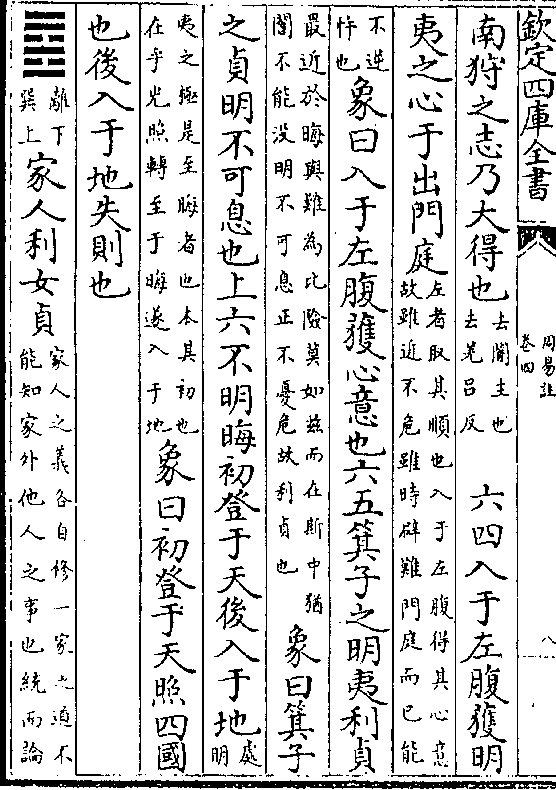 欽定四庫全書
周易註
卷四
八
南狩之志乃大得也去闇主也去羌呂反六四入于左腹獲明
夷之心于出門庭左者取其順也入于左腹得其心意故雖近不危雖時辟難門庭而已能
不逆忤也象曰入于左腹獲心意也六五箕子之明夷利貞
最近於晦與難為比險莫如茲而在斯中猶闇不能没明不可息正不憂危故利貞也象曰箕子
之貞明不可息也上六不明晦初登于天後入于地處明
夷之極是至晦者也本其初也在乎光照轉至于晦遂入于地象曰初登于天照四國
也後入于地失則也
離下巽上家人利女貞家人之義各自修一家之道不能知家外他人之事也統而論